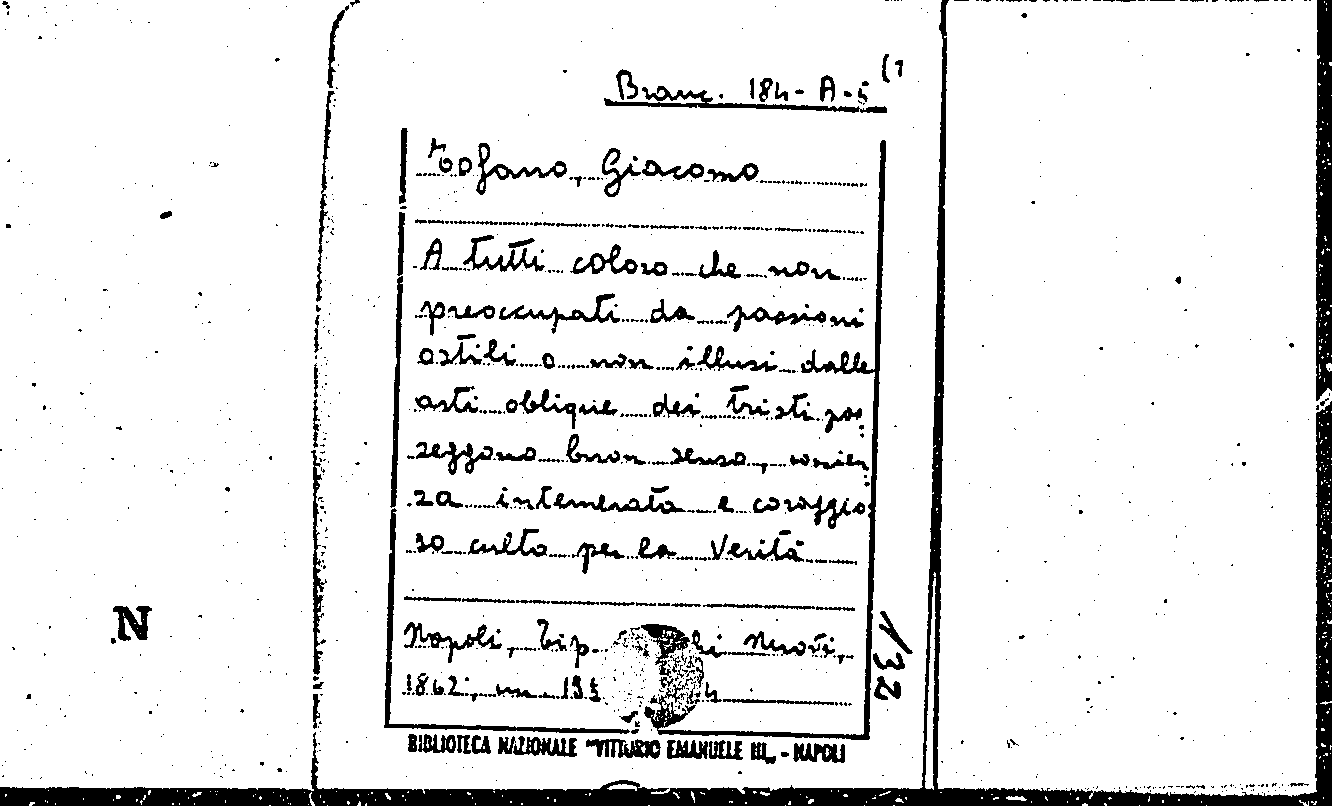 Branc. 184-A-5 (1
Tofano, Giacomo
A tutti coloro che non
preoccupati da passioni
ostili o non illusi dalle
arti oblique dei tristi pos
seggono buon senso, coscien
za intemerata e coraggio
so culto per la Verità
Napoli, Tip. Nuovi,
1862,
132
N
BIBLIOTECA NAZIONALE "VITTORIO EMANUELE III„ - NAPOLI